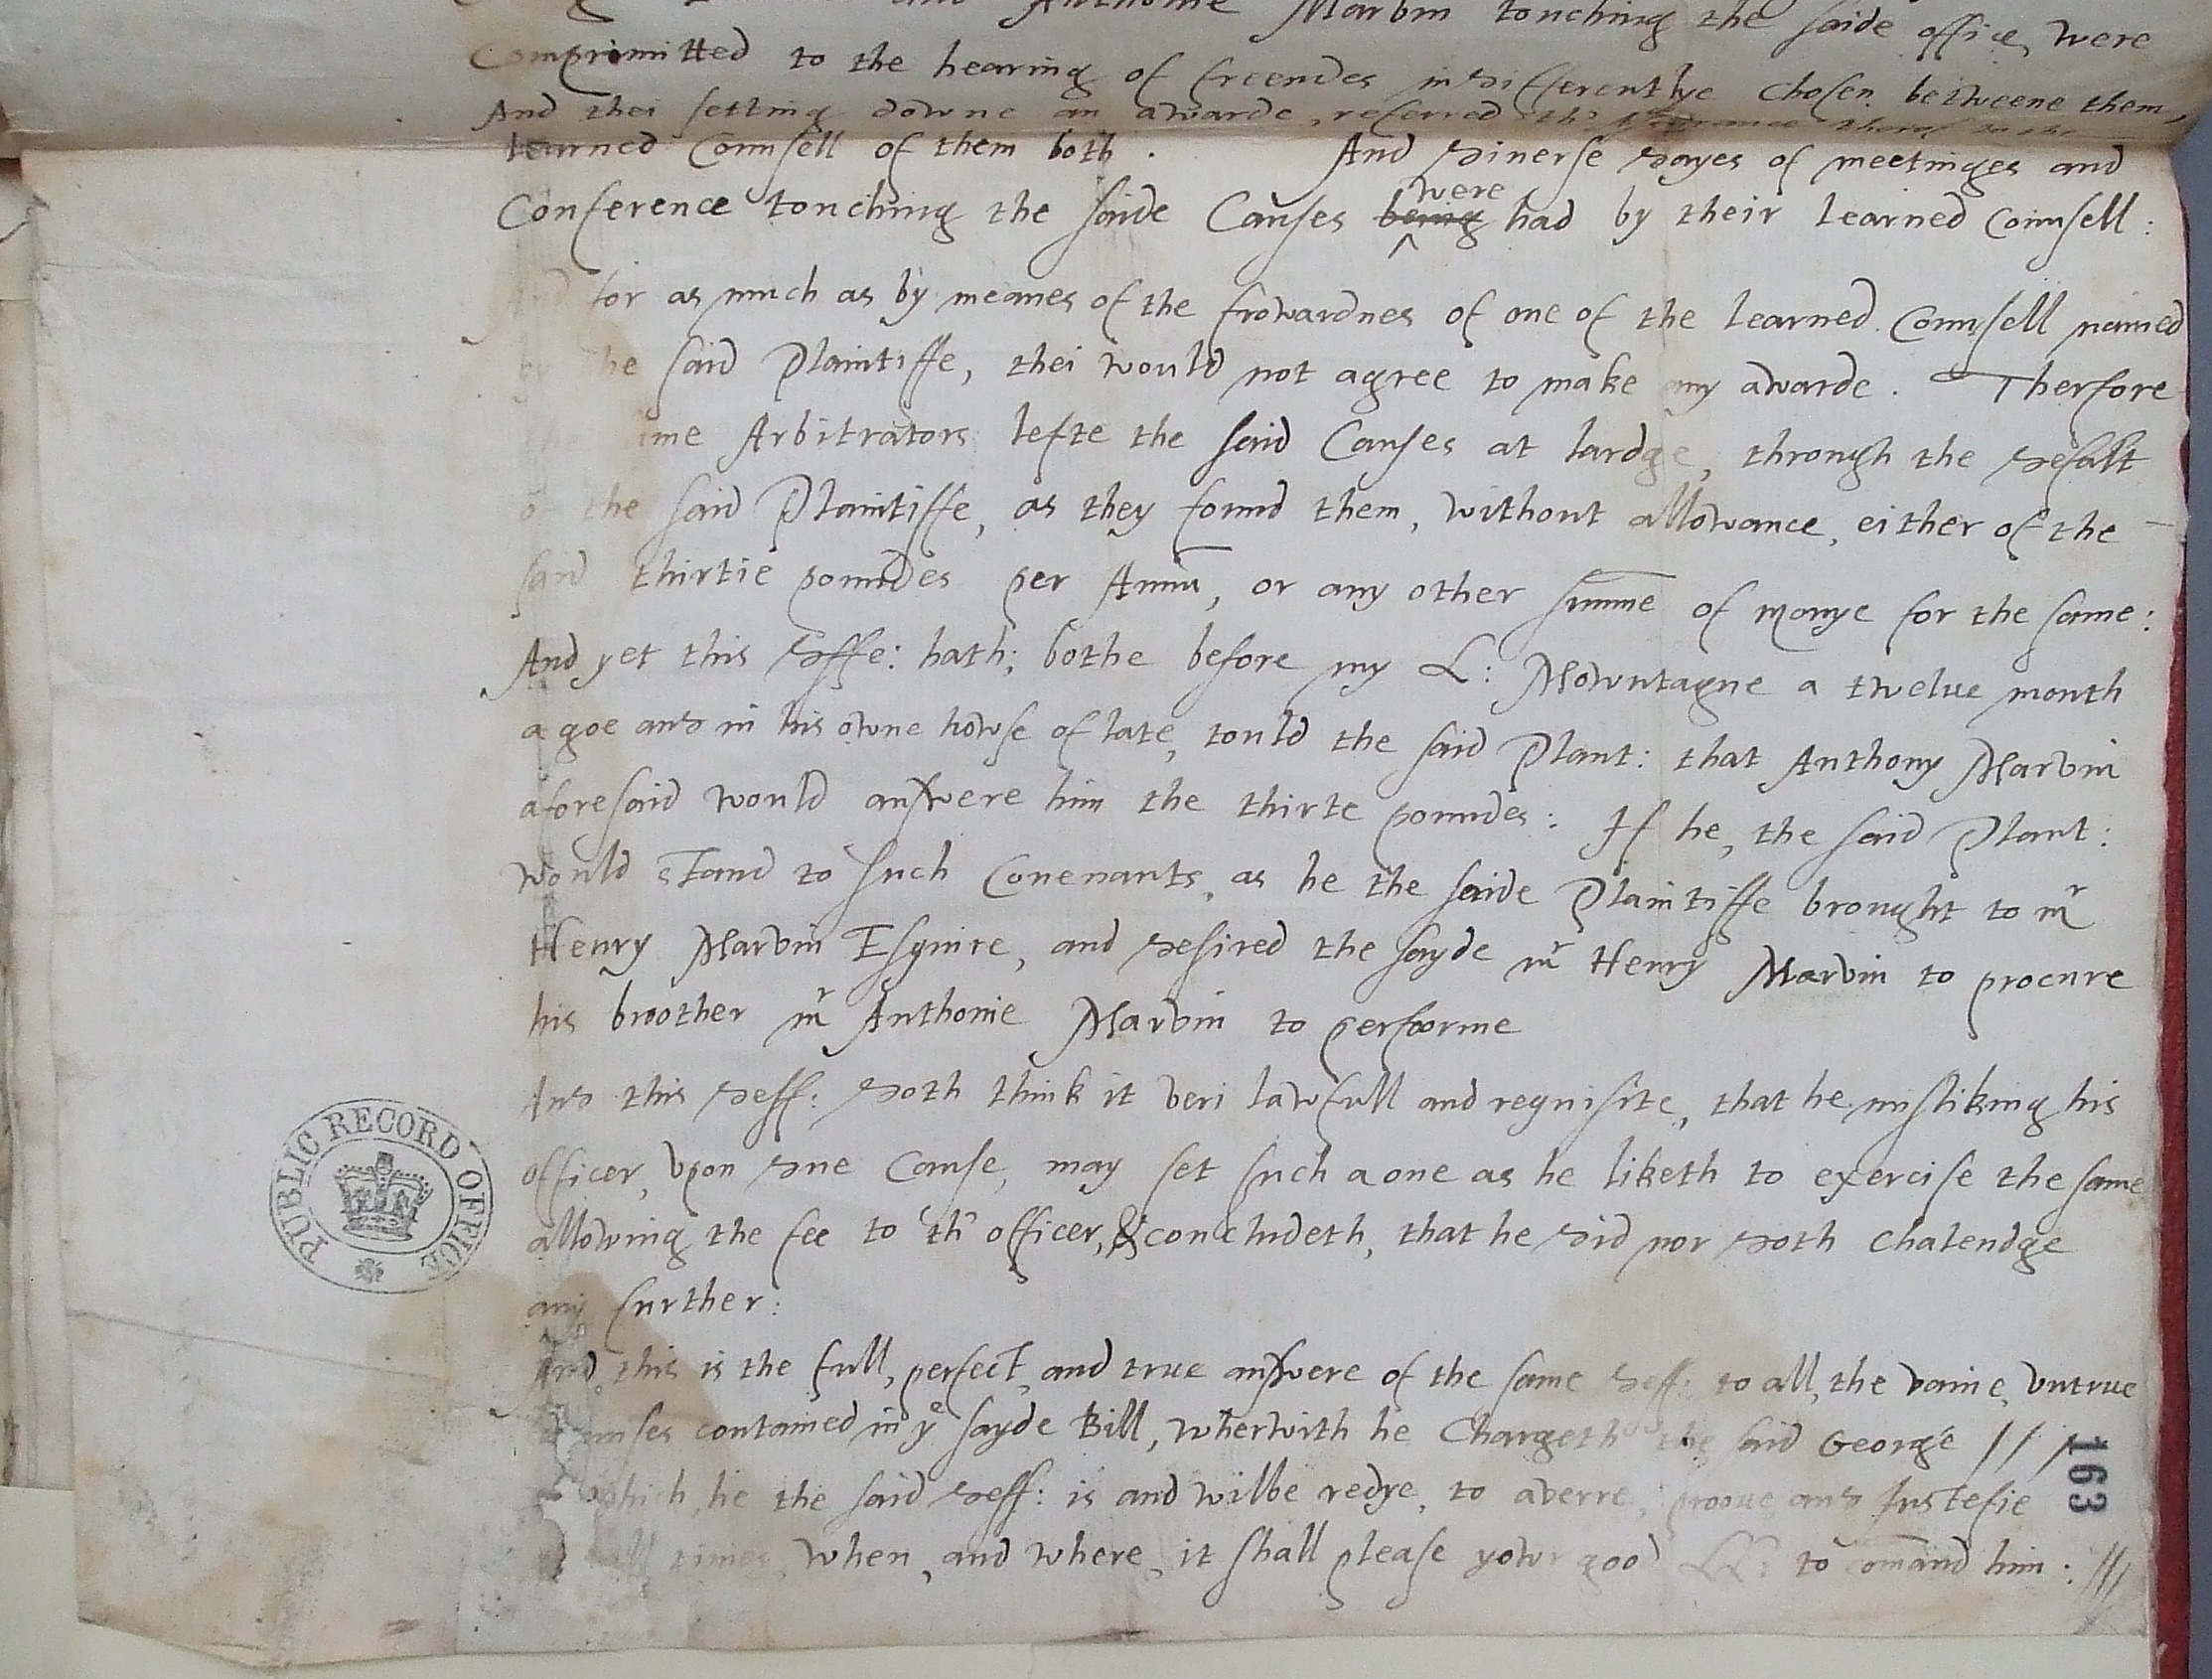 and Anthonie Marvin touching the saide office, were
Compromitted to the hearing of freendes indifferentlye chosen betweene them,
And thei setting downe an awarde, referred the thereof to the
learned Counsell of them both . And diuerse dayes of meetinges and
Conference touching the saide Causes being were had by their learned Counsell :
And for as much as by meanes of the frowardnes of one of the learned Counsell named
by the said Plaintiffe, thei would not agree to make any awarde . Therfore
the same Arbitrators lefte the said Causes at lardge, through the defalt
of the said Plaintiffe, as they found them, without allowance, either of the
said thirtie poundes per Annū, or any other summe of monye for the same :
And yet this deffe: hath; bothe before my L: Mowntagne a twelue month
a goe and in his owne howse of late, tould the said Plant: that Anthony Marvin
aforesaid would answere him the thirte poundes : If he, the said Plant:
would stand to such Couenants, as he the saide Plaintiffe brought to mr
Henry Marvin Esquire, and desired the sayde mr Henry Marvin to procure
his broother mr Anthonie Marvin to perfoorme
And this deff: doth think it veri lawfull and requisite, that he misliking his
officer, vpon due Cause, may set such a one as he liketh to exercise the same
allowing the fee to th' officer, & concludeth, that he did nor doth chalendge
any further :
And this is the full, perfect, and true answere of the same deff: to all, the vaine, vntrue
contained in ye sayde Bill, wherwith he Chargeth the said George ///
which, he the said deff: is and wilbe redye, to averre, prooue and Iustefie
at all times, when, and where, it shall please yowr good LL: to comand him : ///
PUBLIC RECORD OFFICE
163